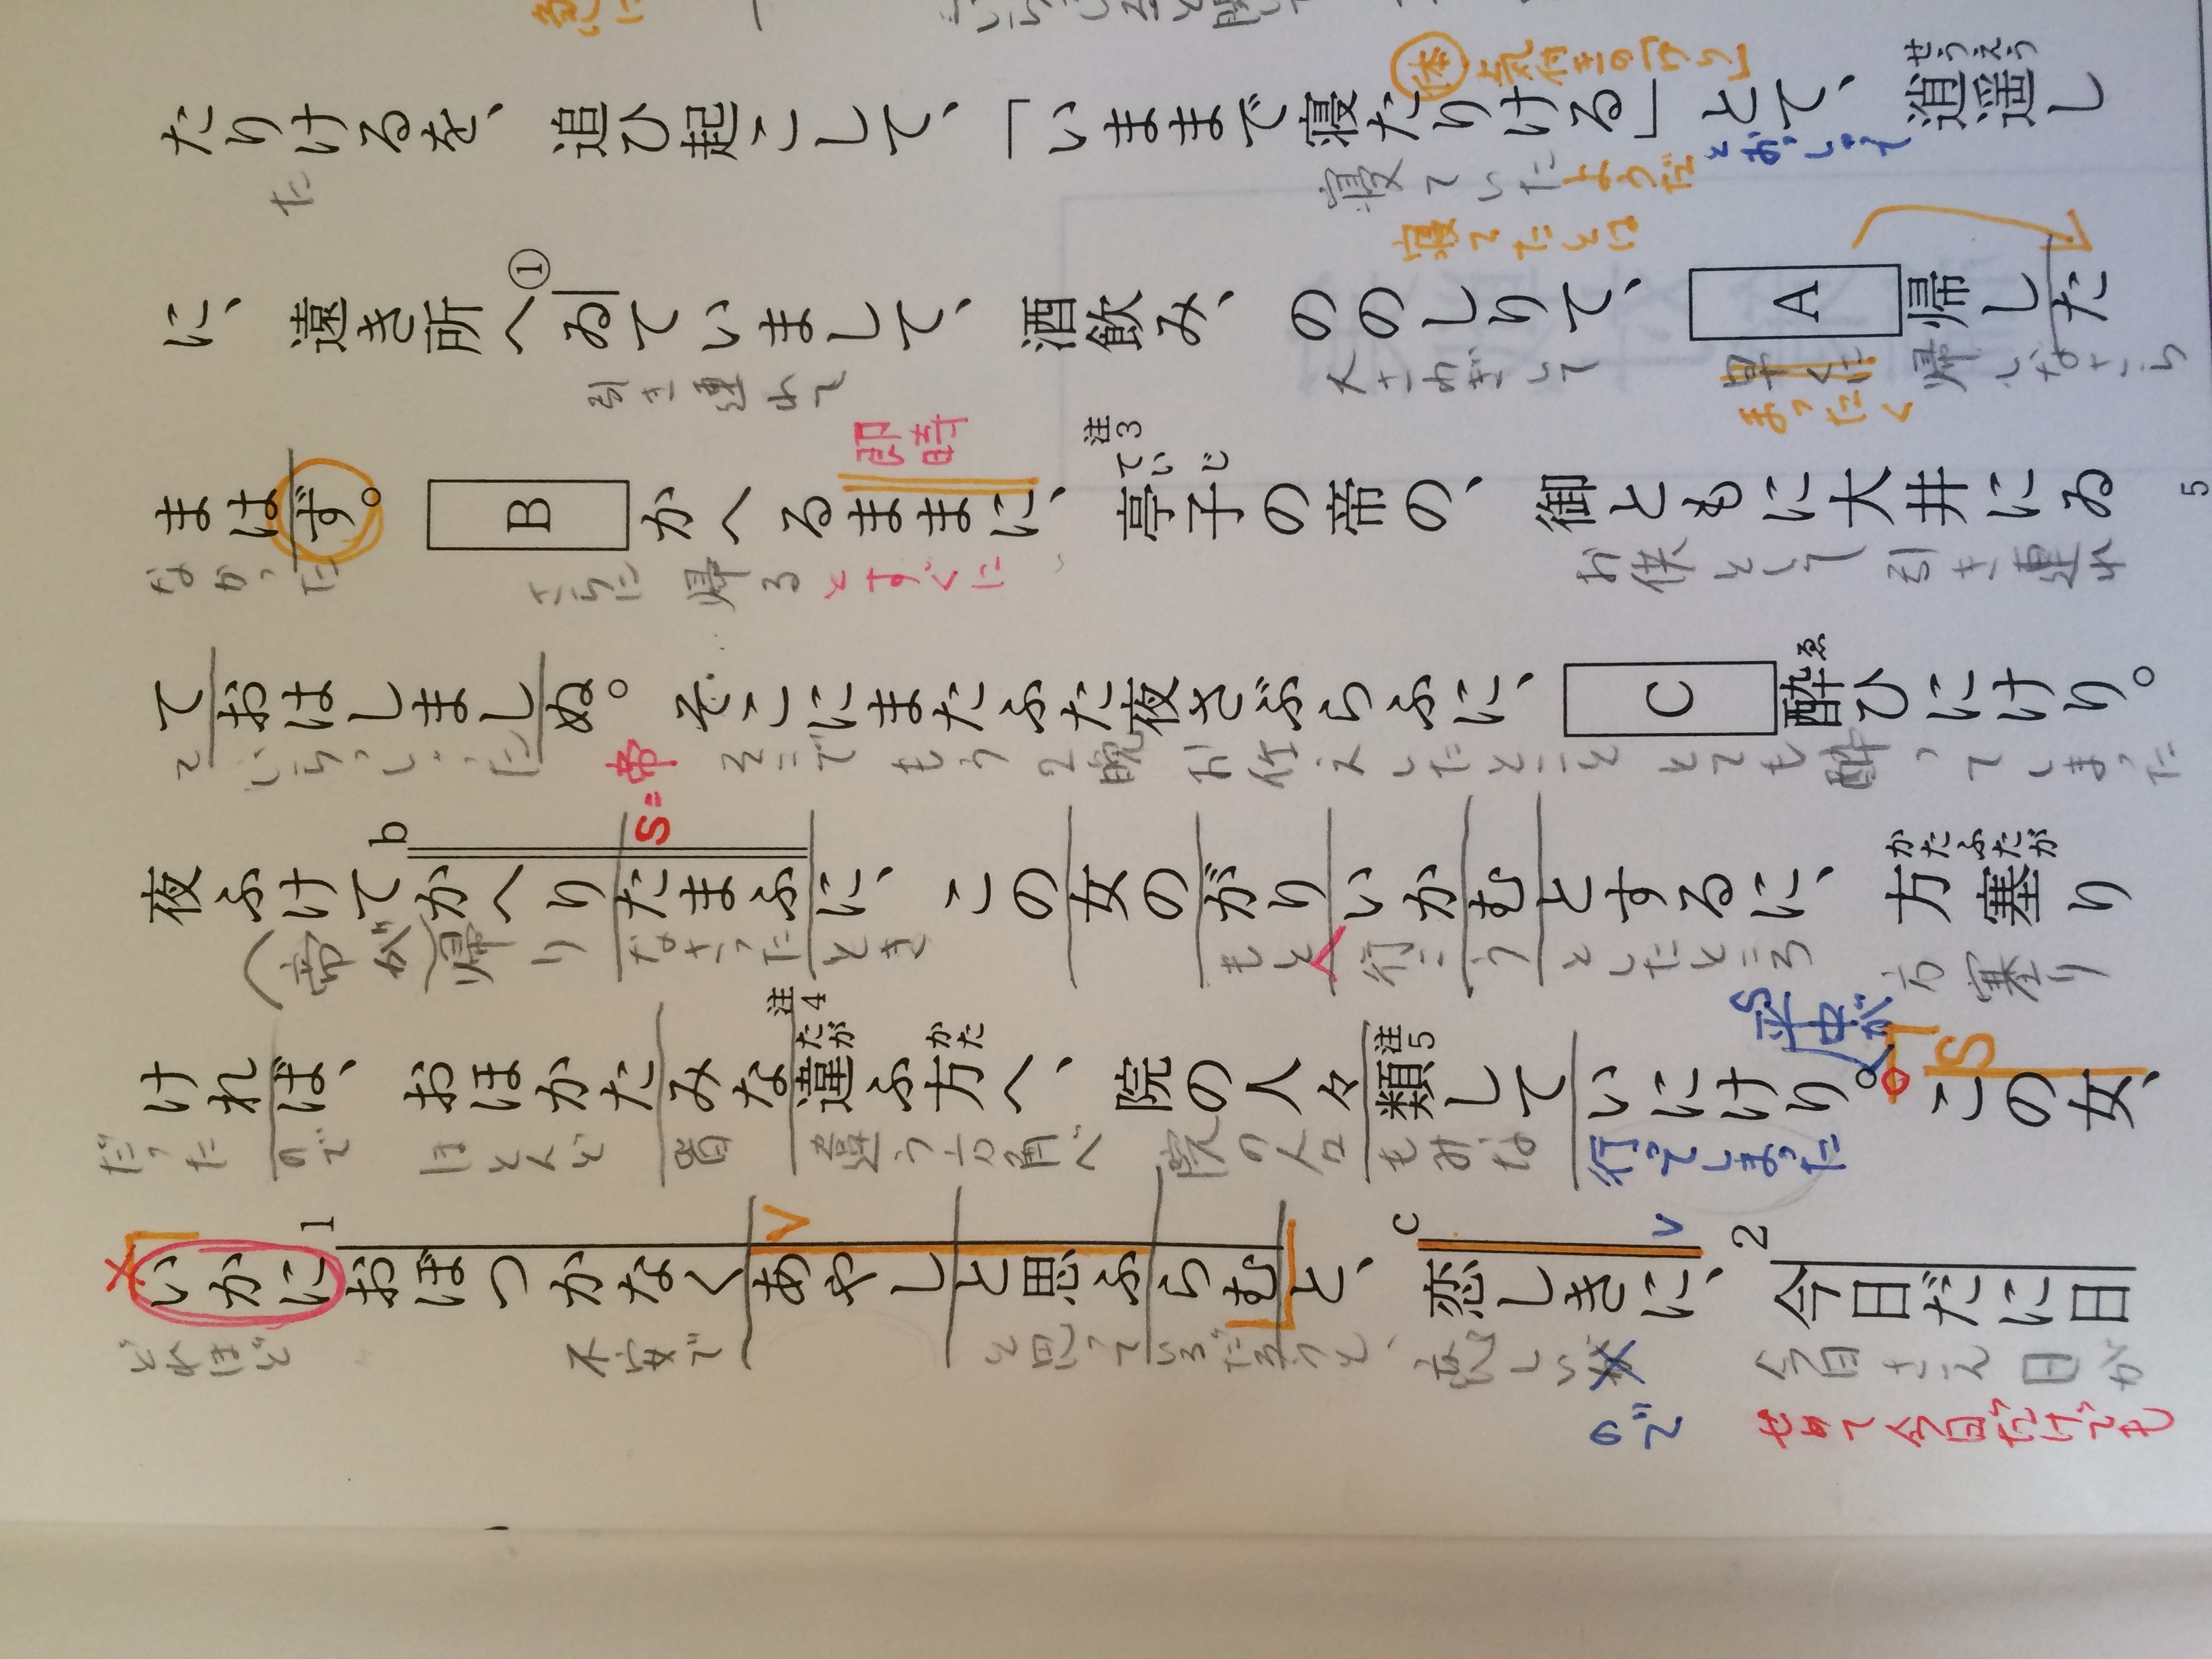 たりけるを、追ひ起こして、「いままで寝たりける」とて、逍遥し
せうえう
体
気付きの「けり」
とおっしゃって
た
寝ていたようだ
寝てたとは
に、遠き所へ①ゐていまして、酒飲み、ののしりて、 A 帰した
引き連れて
大さわぎして
早くに
まったく
帰しなさら
まはず。 B かへるままに、亭子の帝の、御ともに大井にゐ
注3
ていじ
即時
5
なかった
さらに
帰る
とすぐに
お供として
引き連れ
ておはしましぬ。そこにまたふた夜さぶらふに、 C 酔ひにけり。
ゑ
ていらっしゃった
そこで
もう2晩
お仕えしたところ
とても酔ってしまった
夜ふけてかへりたまふに、この女のがりいかむとするに、方塞り
b
S=帝
かたふたが
(帝が)帰り
なさった
とき
もとへ
行こうとしたところ
方塞り
ければ、おほかたみな違ふ方へ、院の人々類していにけり。この女、
注4
たが
かた
注5
S
平中が
S
だった
ので
ほとんど
皆
違う方角へ
院の人々
もみな
行ってしまった
いかにおぼつかなくあやしと思ふらむと、恋しきに、今日だに日
1
V
c
V
2
どれほど
不安で
と思っているだろうと、
恋しい
ので
今日さえ日が
せめて今日だけでも